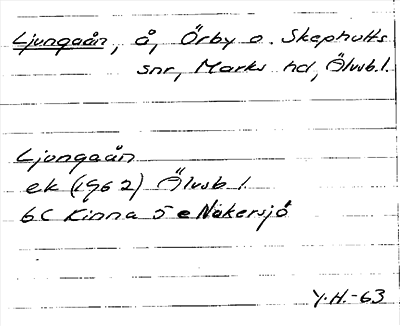 Ljungaån, å, Örby o. Skephults
snr, Marks hd, Älvsb. l.
Ljungaån
ek (1962) Älvsb l.
6C Kinna 5 e Nökersjö
Y.H.-63